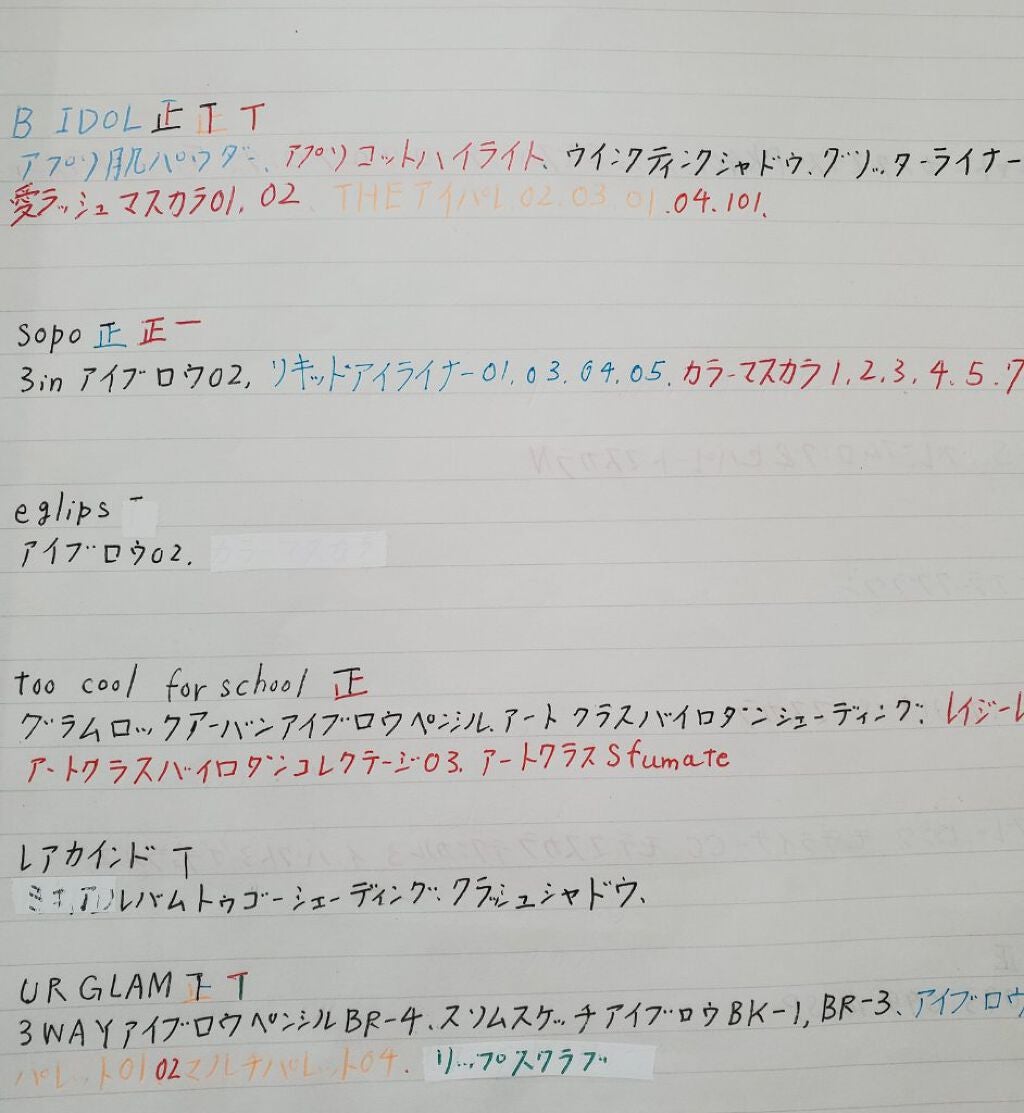 B IDOL 正 正 T
アプリ肌パウダー、アプリコットハイライト、ウインクティンクシャドウ、グリッターライナー
愛ラッシュマスカラ01, 02、THEアイパレ02.03.01.04.101.
sopo 正 正 一
3in アイブロウ02, リキッドアイライナー01.03.04.05. カラーマスカラ1.2.3.4.5.7
eglips 一
アイブロウ02. カラーマスカラ
too cool for school 正
グラムロックアーバンアイブロウペンシル、アートクラスバイロダンシェーディング、レイジー
アートクラスバイロダンコレクテージ03. アートクラスSfumate
レアカインド T
ミニアルバムトゥゴーシェーディング、クラッシュシャドウ、
UR GLAM 正 T
3WAYアイブロウペンシルBR-4、スリムスケッチアイブロウBK-1, BR-3、アイブロウ
パレット01 02マルチパレット04. リップスクラブ